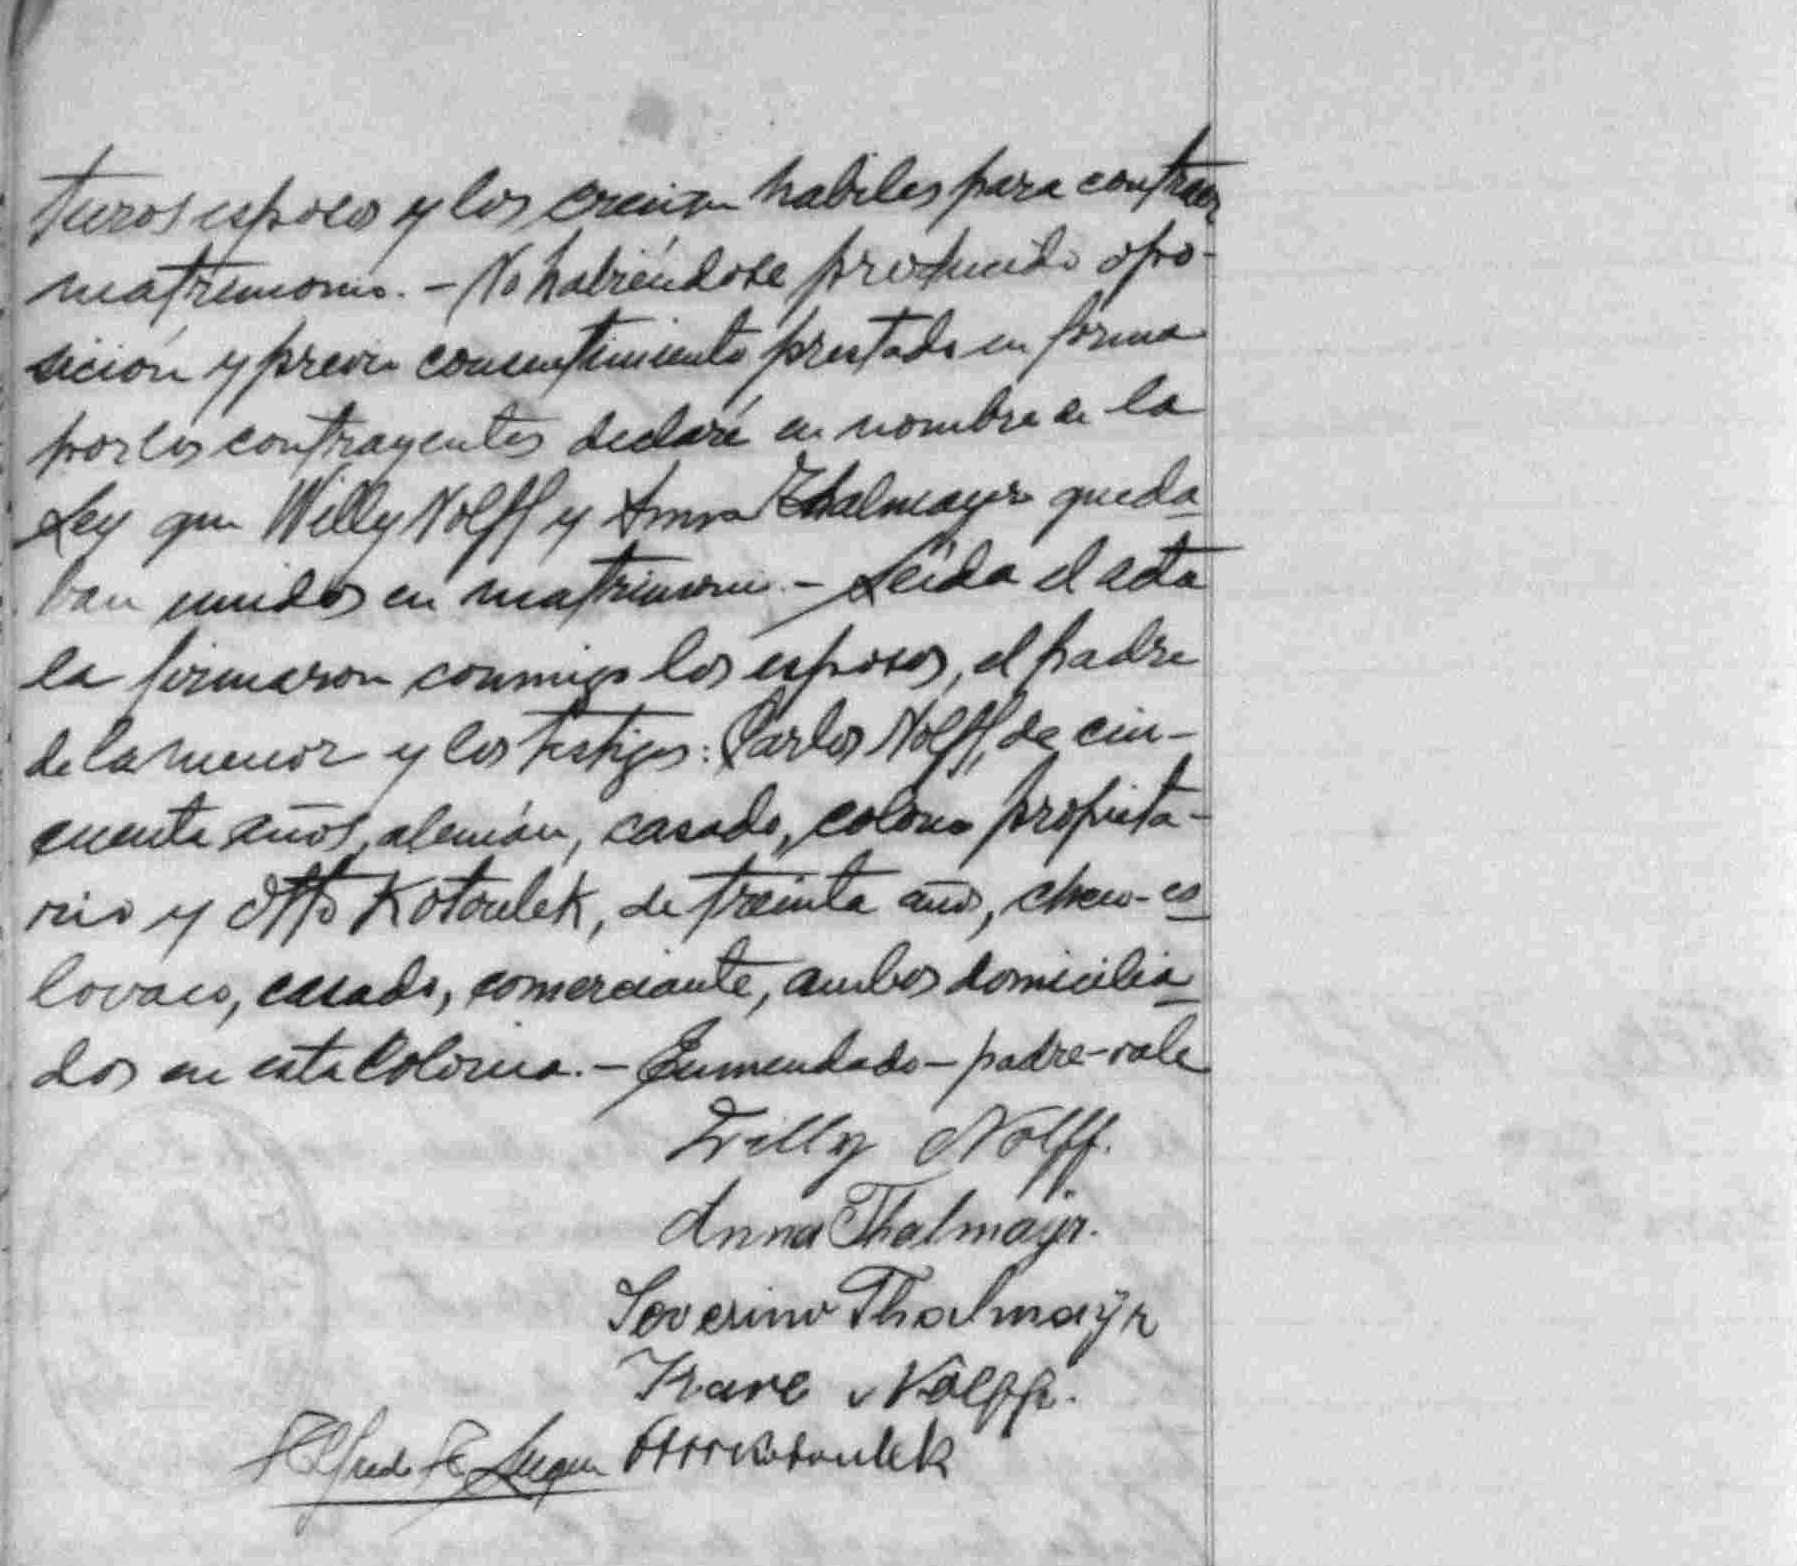 turos esposos y los creian habiles para contraer
matrimonio. - No habiéndose producido opo-
sición y previo consentimiento prestado en forma
por los contrayentes declaré en nombre de la
Ley que Willy Nolff y Anna Thalmayr queda-
ban unidos en matrimonio. - Leída el acta
la firmaron conmigo los esposos, el padre
de la menor y los testigos: Carlos Nolff, de cin-
cuenta años, alemán, casado, colono propieta-
rio y Otto Kotoulek, de treinta años, checo-es
lovaco, casado, comerciante, ambos domicilia
dos en esta Colonia. - Enmendado - padre - vale
Willy Nolff.
Anna Thalmayr.
Severino Thalmayr
Karl Nolff.
Alfredo Otto Kotoulek